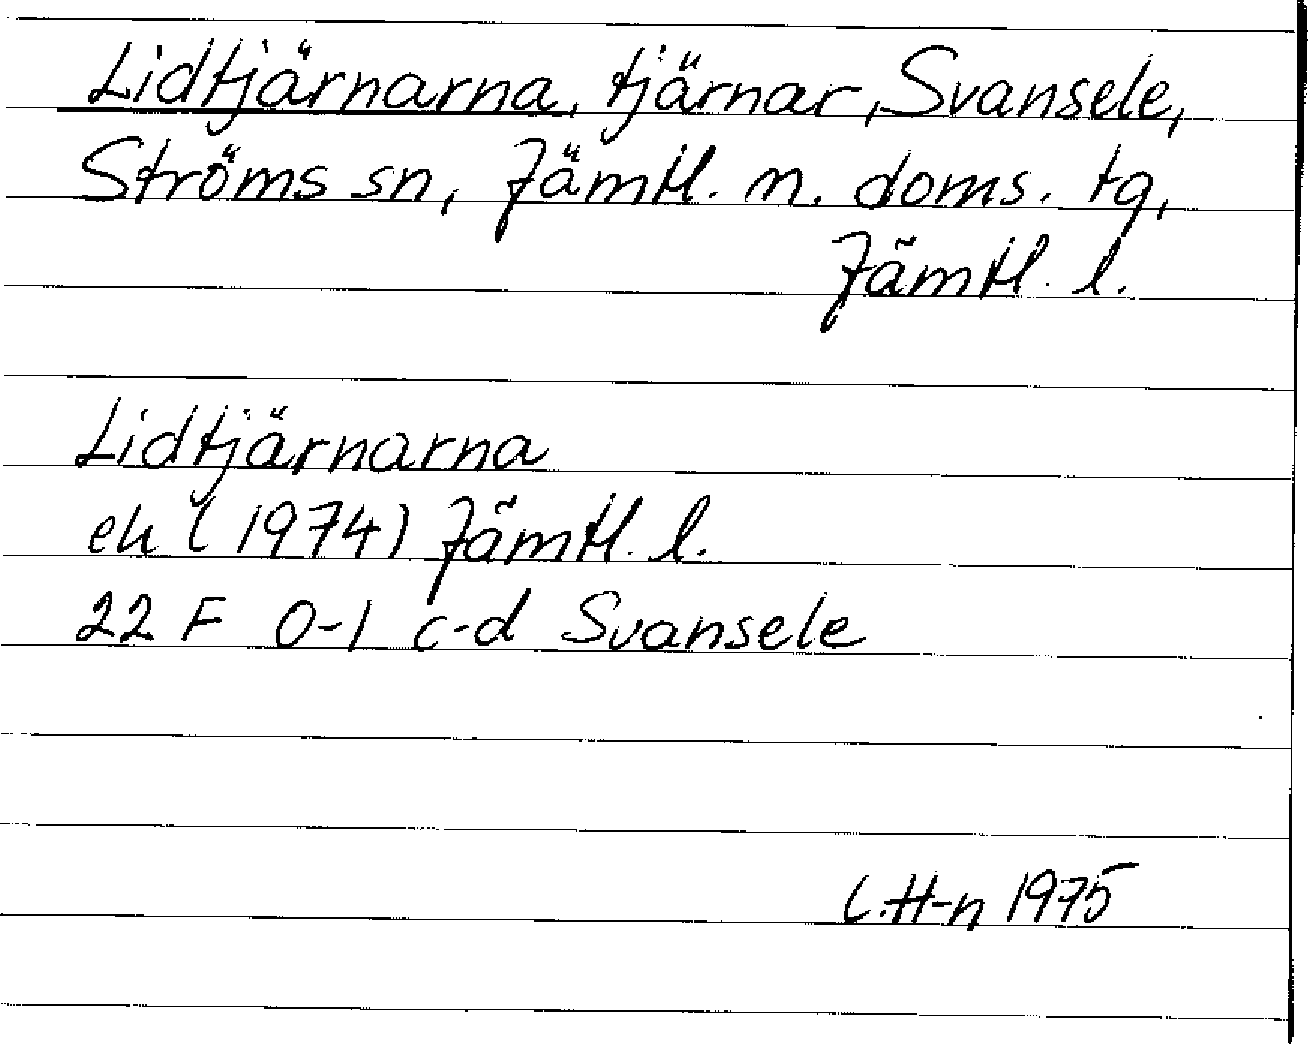 Lidtjärnarna, tjärnar, Svansele,
Ströms sn, Jämtl. n. doms. tg,
Jämtl. l.
Lidtjärnarna
ek (1974) Jämtl. l.
22 F 0-1 c-d Svansele
C.H-n 1975